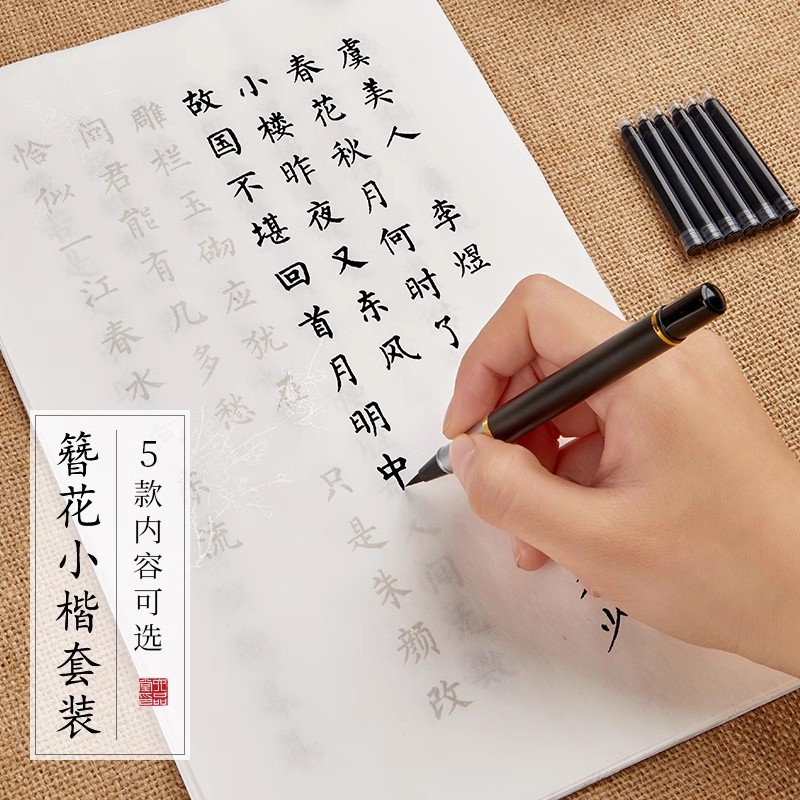 虞美人 李煜
春花秋月何时了
少
小楼昨夜又东风
故国不堪回首月明中
雕栏玉砌应犹在
只是朱颜改
问君能有几多愁
恰似一江春水
东流
5款内容可选
簪花小楷套装